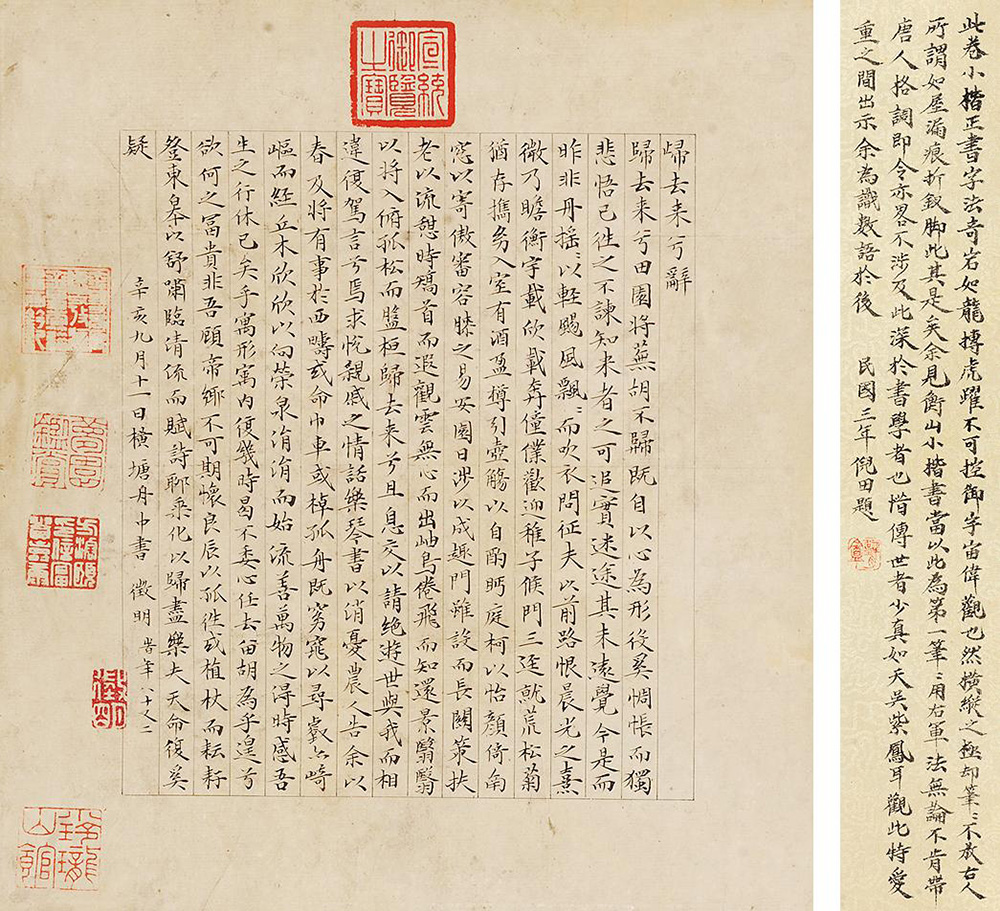 宣統御覽之寶
歸去来兮辭
歸去来兮田園将蕪胡不歸既自以心為形役奚惆悵而獨
悲悟已往之不諫知来者之可追實迷途其未遠覺今是而
昨非舟摇〻以輕颺風飄〻而吹衣問征夫以前路恨晨光之熹
微乃瞻衡宇載欣載奔僮僕歡迎稚子候門三逕就荒松菊
猶存擕幼入室有酒盈樽引壺觴以自酌眄庭柯以怡顔倚南
窓以寄傲審容膝之易安園日涉以成趣門雖設而長關策扶
老以流憩時矯首而遐觀雲無心而出岫鳥倦飛而知還景翳翳
以将入俯孤松而盤桓歸去来兮且息交以請絶遊世與我而相
違復駕言兮焉求恱親戚之情話樂琴書以消憂農人告余以
春及将有事於西疇或命巾車或棹孤舟既窈窕以尋壑亦崎
嶇而經丘木欣欣以向榮泉涓涓而始流善萬物之得時感吾
生之行休已矣乎寓形宇内復幾時曷不委心任去留胡為乎遑兮
欲何之冨貴非吾願帝鄉不可期懷良辰以孤往或植杖而耘耔
登東皋以舒嘯臨清流而賦詩聊乘化以歸盡樂夫天命復奚
疑
辛亥九月十一日橫塘舟中書 徵明 旹年八十又二
徵明
玲瓏山館
此卷小楷正書字法奇宕如龍搏虎躍不可控御宇宙偉觀也然橫縱之極却筆〻不放古人
所謂如屋漏痕折釵脚此其是矣余見衡山小楷書當以此為第一筆〻用右軍法無論不肯帶
唐人格調即令亦畧不涉及此深於書學者也惜傳世者少真如天吳紫鳳耳觀此特愛
重之間出示余為識數語於後 民國三年倪田題